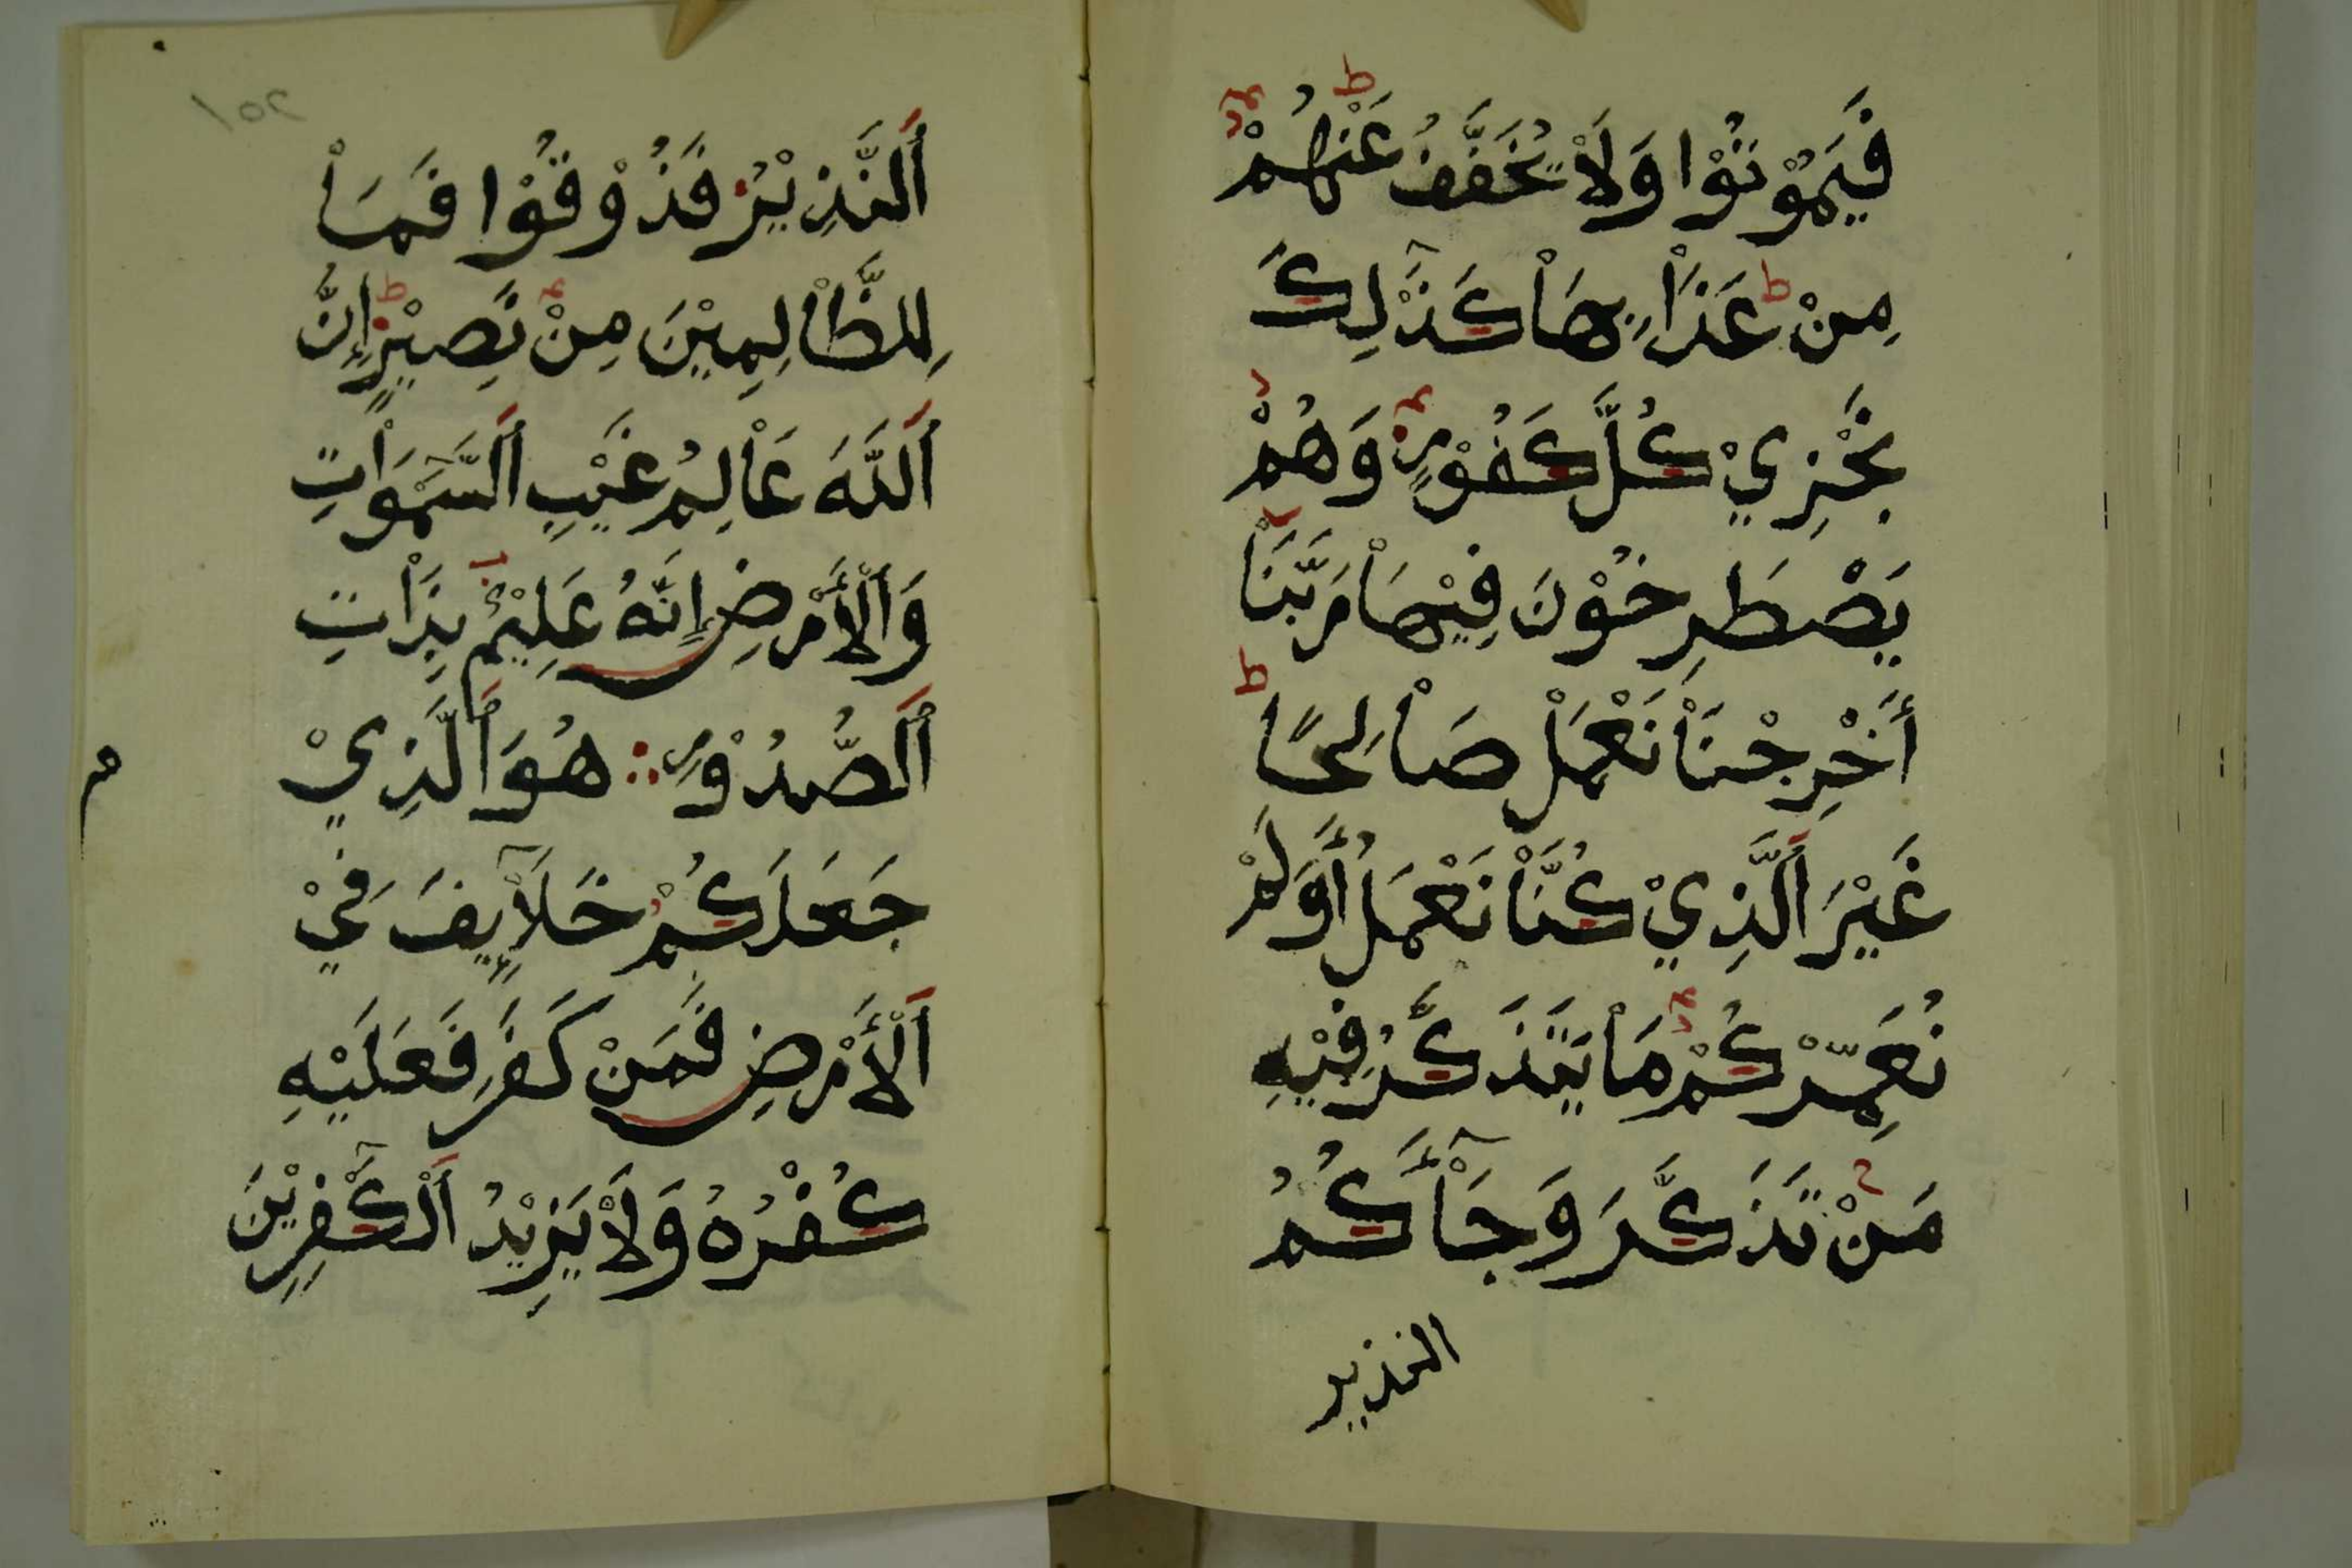 فَيَمُوْتُوْا وَلَاْ يُخَفَّفُ عَنْهُمْ
مِنْ عَذَاْبِهَاْ كَذَٰلِكَ
نَجْزِيْ كُلَّ كَفُوْرٍ وَهُمْ
يَصْطَرِخُوْنَ فِيْهَاْ رَبَّنَاْ
أَخْرِجْنَاْ نَعْمَلْ صَاْلِحًا
غَيْرَ اَلَّذِيْ كُنَّاْ نَعْمَلُ أَوَلَمْ
نُعَمِّرْكُمْ مَاْ يَتَذَكَّرُ فِيْهِ
مَنْ تَذَكَّرَ وَجَاْءَكُمُ
النذير
اَلنَّذِيْرُ فَذُوْقُوْا فَمَاْ
لِلظَّاْلِمِيْنَ مِنْ نَصِيْرٍ إِنَّ
اَللَّهَ عَاْلِمُ غَيْبِ اَلسَّمَٰوَاْتِ
وَاَلْأَرْضِ إِنَّهُ عَلِيْمٌ بِذَاْتِ
اَلصُّدُوْرِ هُوَ اَلَّذِيْ
جَعَلَكُمْ خَلَاْئِفَ فِيْ
اَلْأَرْضِ فَمَنْ كَفَرَ فَعَلَيْهِ
كُفْرُهُ وَلَاْ يَزِيْدُ اَلْكَٰفِرِيْنَ